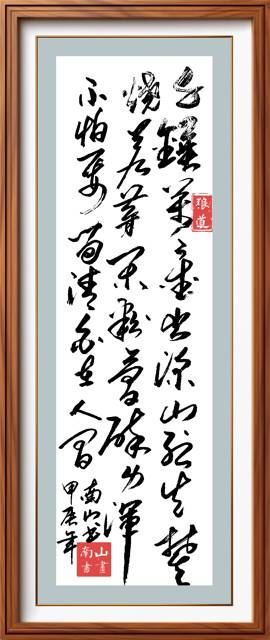 千鎚萬鑿出深山烈火焚
燒若等閒粉骨碎身渾
不怕要留清白在人間
南山書
甲辰年
南山書畫